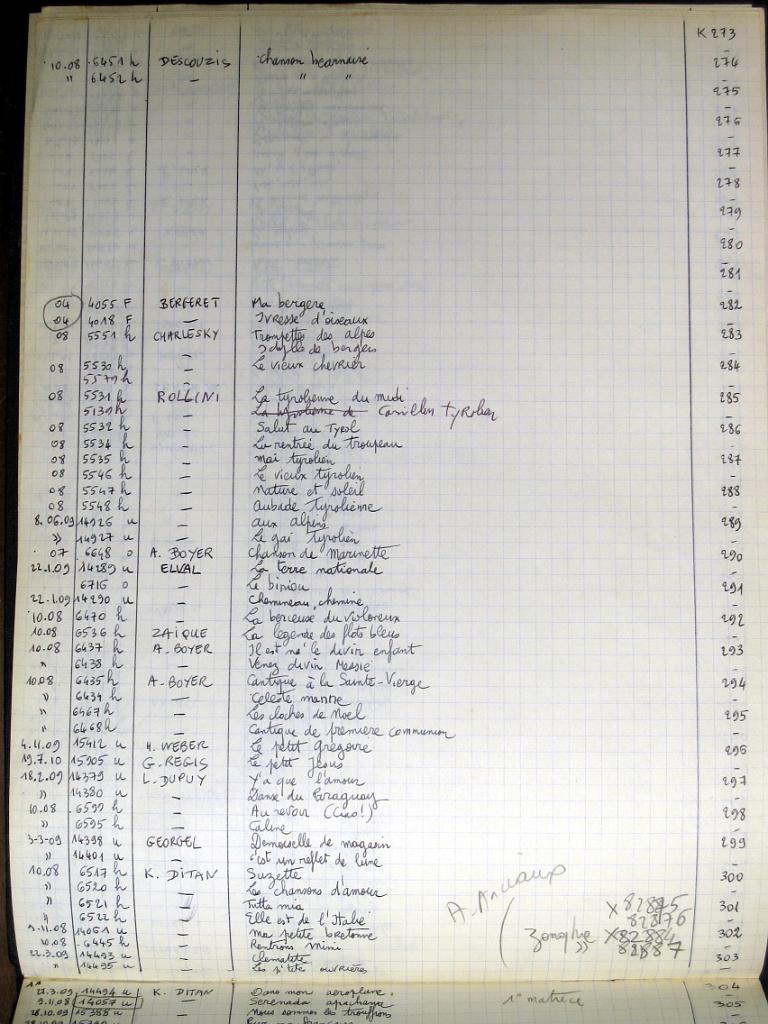 K 273
10.08 6451 h DESCOUZIS chanson béarnaise 274
" 6452 h — " "
275
276
277
278
279
280
281
04 4055 F BERGERET Ma bergère 282
04 4018 F — Ivresse d'oiseaux
08 5551 h CHARLESKY Trompettes des alpes 283
— Idylle de bergers
08 5530 h — Le vieux chevrier 284
5579 h
08 5531 h ROLLINI La tyrolienne du midi 285
5139 h — La tyrolienne de Carillon tyrolien
08 5532 h — Salut au Tyrol 286
08 5534 h — La rentrée du troupeau
08 5535 h — Mai tyrolien 287
08 5546 h — Le vieux tyrolien
08 5547 h — Nature et soleil 288
08 5548 h — Aubade tyrolienne
8.06.09 14926 u — Aux alpins 289
" 14927 u — Le gai tyrolien
07 6648 o A. BOYER Chanson de Marinette 290
22.1.09 14289 u ELVAL La terre nationale
6716 o — Le biniou 291
22.1.09 14290 u — Chemineau, chemine
10.08 6470 h — La berceuse du violoneux 292
10.08 6536 h ZAÏQUE La légende des flots bleus
10.08 6437 h A. BOYER Il est né le divin enfant 293
" 6438 h — Venez divin Messie
10.08 6435 h A. BOYER Cantique à la Sainte-Vierge 294
" 6434 h — Céleste manne
" 6467 h — Les cloches de Noël 295
" 6468 h — Cantique de première communion
4.11.09 15412 u H. WEBER Le petit Grégoire 296
19.7.10 15905 u G. REGIS Le petit Jésus
18.2.09 14379 u L. DUPUY Y'a que l'amour 297
" 14380 u — Danse du Paraguay
10.08 6599 h — Au revoir (Ciao!) 298
" 6595 h — Caline
3-3-09 14398 u GEORGEL Demoiselle de magasin 299
" 14401 u — C'est un reflet de lune
10.08 6517 h K. DITAN Suzette 300
" 6520 h — Les chansons d'amour
" 6521 h — Tutta mia 301
" 6522 h — Elle est de l'Italie
9.11.08 14061 u — Ma petite bretonne 302
10.08 6445 h — Rentrons Mimi
22.3.09 14493 u — Clematete 303
" 14495 u — Les p'tites ouvrières
A. Anciaux
Zonophe X 82875
82876
X 82884
" 82887
22.3.09 14494 u K. DITAN Dans mon aéroplane 304
9.11.08 14057 u — Serenada apachana 1° matrice 305
28.10.09 15388 u — Nous sommes les trouffions